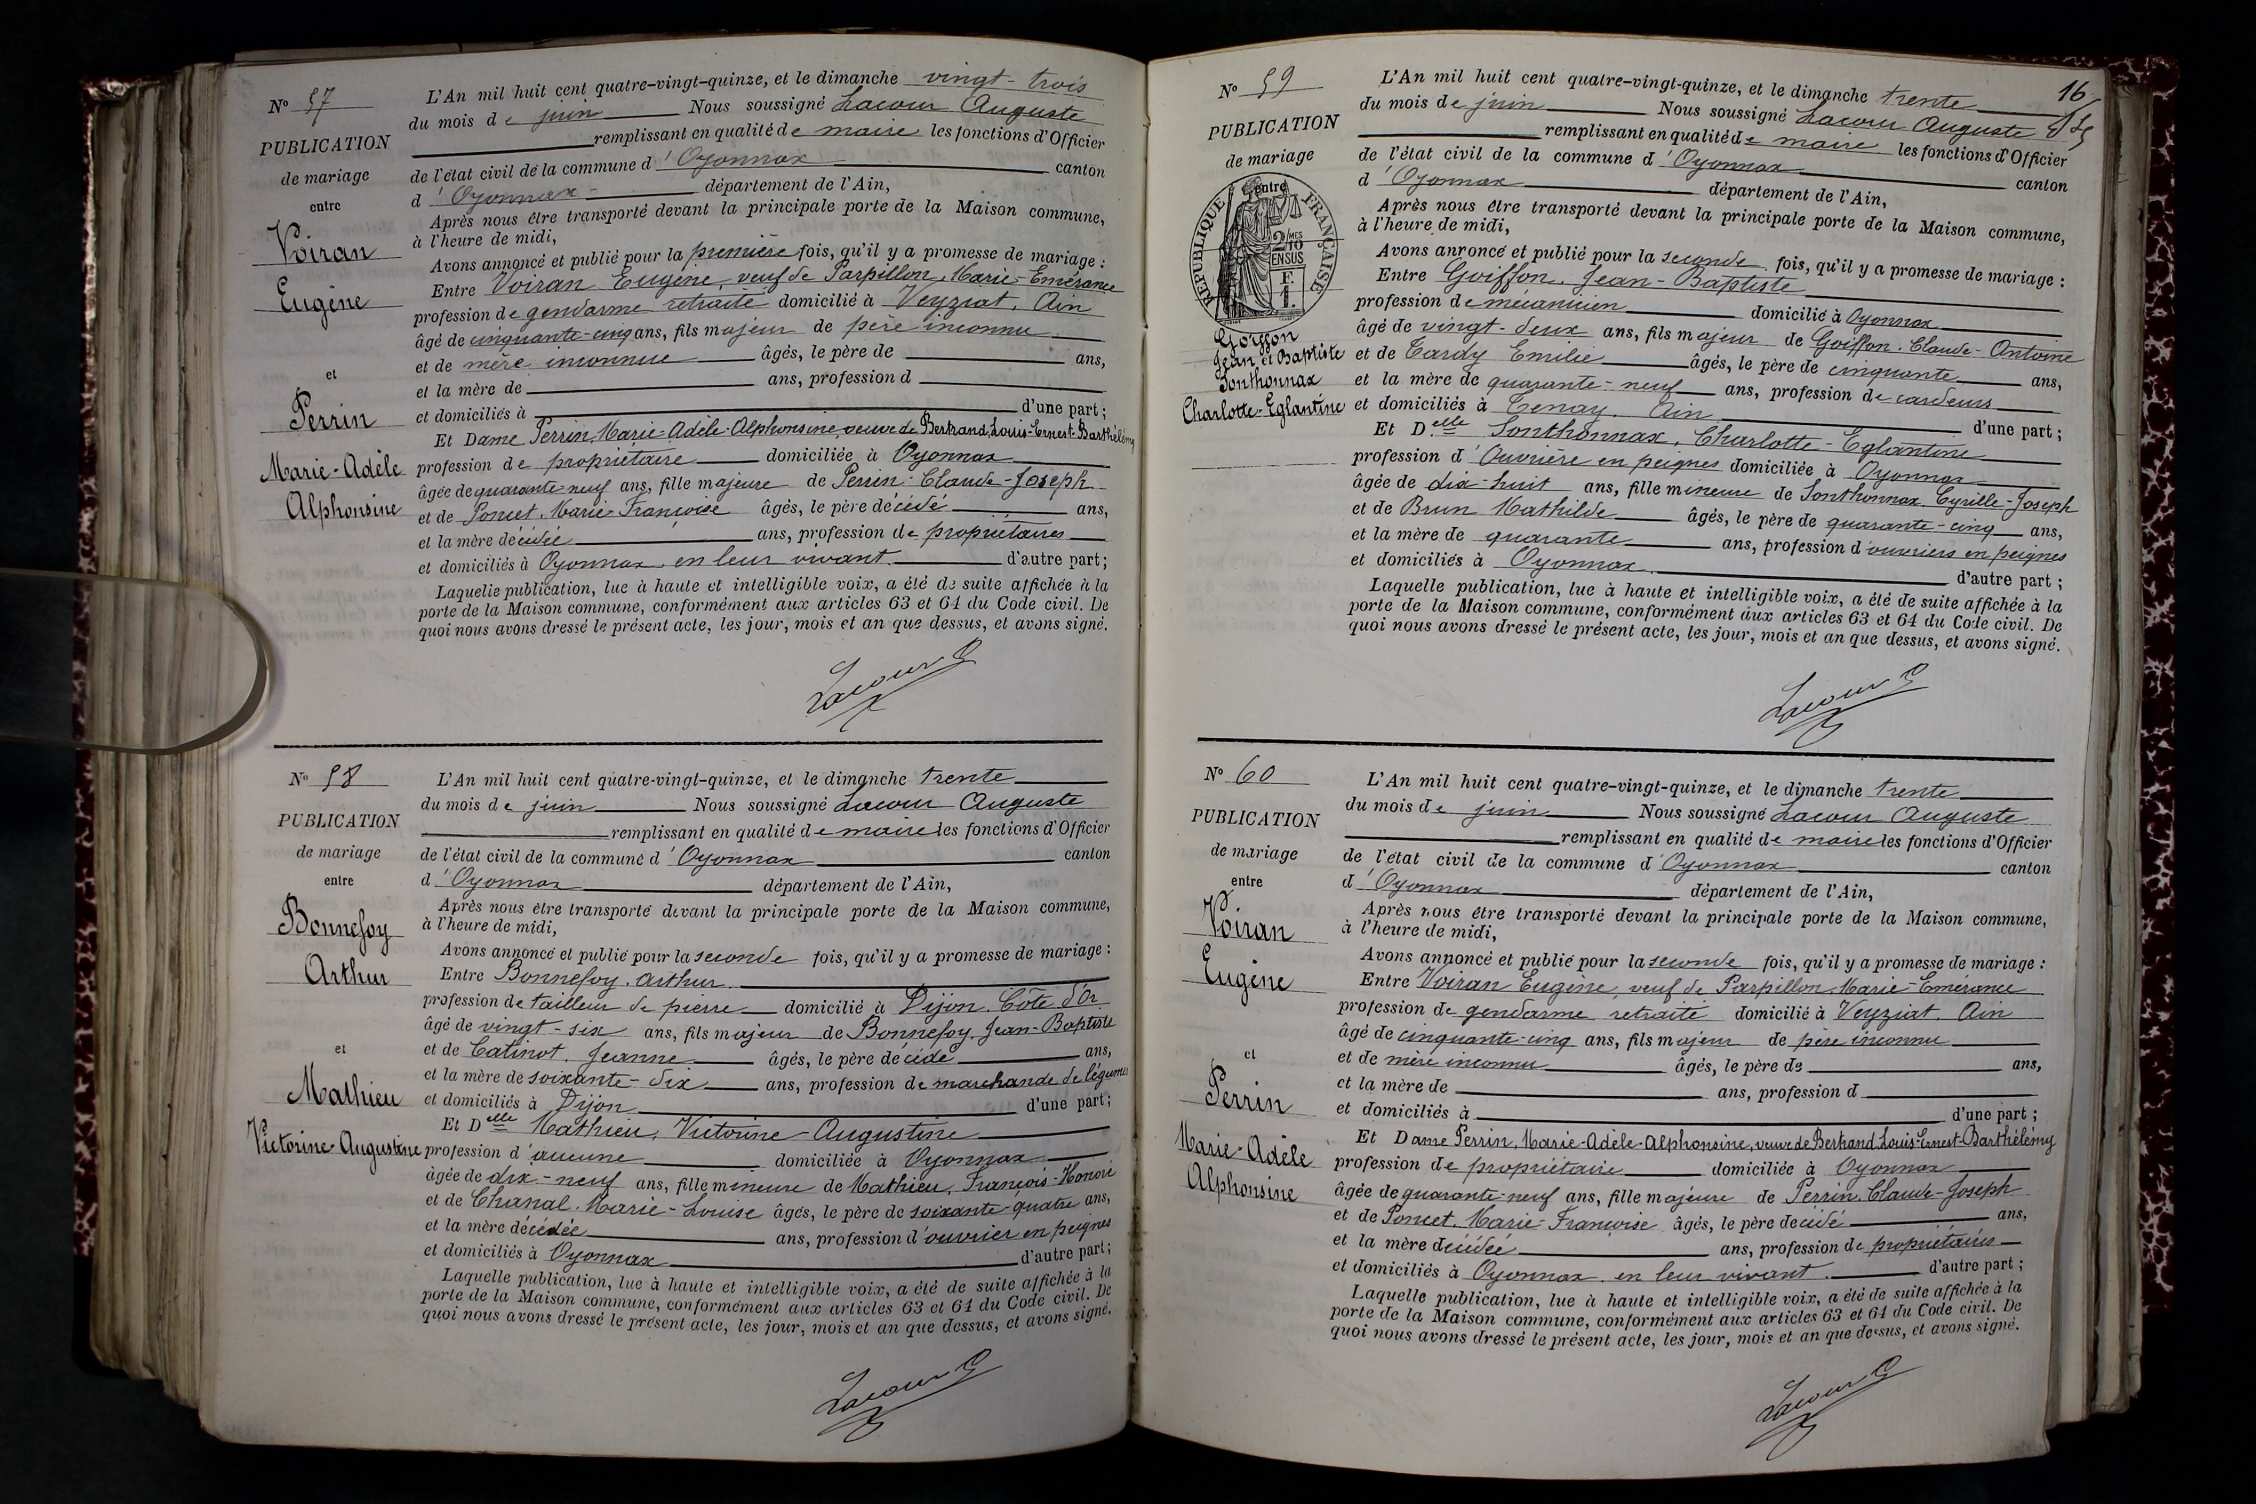 N° 57
PUBLICATION
de mariage
entre
Voiran
Eugène
et
Perrin
Marie-Adèle
Alphonsine
L'An mil huit cent quatre-vingt-quinze, et le dimanche vingt-trois
du mois de juin Nous soussigné Lacour Auguste
remplissant en qualité de maire les fonctions d'Officier
de l'état civil de la commune d'Oyonnax canton
d'Oyonnax département de l'Ain,
Après nous être transporté devant la principale porte de la Maison commune,
à l'heure de midi,
Avons annoncé et publié pour la première fois, qu'il y a promesse de mariage :
Entre Voiran Eugène, veuf de Parpillon, Marie-Emérance
profession de gendarme retraité domicilié à Veyziat, Ain
âgé de cinquante-cinq ans, fils majeur de père inconnu
et de mère inconnue âgés, le père de ans,
et la mère de ans, profession d
et domiciliés à d'une part ;
Et Dame Perrin, Marie-Adèle-Alphonsine, veuve de Bertrand, Louis-Ernest-Barthélémy
profession de propriétaire domiciliée à Oyonnax
âgée de quarante-neuf ans, fille majeure de Perrin-Claude-Joseph
et de Poncet, Marie-Françoise âgés, le père décédé ans,
et la mère décédée ans, profession de propriétaires
et domiciliés à Oyonnax en leur vivant. d'autre part ;
Laquelle publication, lue à haute et intelligible voix, a été de suite affichée à la
porte de la Maison commune, conformément aux articles 63 et 64 du Code civil. De
quoi nous avons dressé le présent acte, les jour, mois et an que dessus, et avons signé.
Lacour
N° 58
PUBLICATION
de mariage
entre
Bonnefoy
Arthur
et
Mathieu
Victorine-Augustine
L'An mil huit cent quatre-vingt-quinze, et le dimanche trente
du mois de juin Nous soussigné Lacour Auguste
remplissant en qualité de maire les fonctions d'Officier
de l'état civil de la commune d'Oyonnax canton
d'Oyonnax département de l'Ain,
Après nous être transporté devant la principale porte de la Maison commune,
à l'heure de midi,
Avons annoncé et publié pour la seconde fois, qu'il y a promesse de mariage :
Entre Bonnefoy, Arthur
profession de tailleur de pierre domicilié à Dijon, Côte d'Or
âgé de vingt-six ans, fils majeur de Bonnefoy, Jean-Baptiste
et de Catinot, Jeanne âgés, le père décédé ans,
et la mère de soixante-dix ans, profession de marchande de légumes
et domiciliés à Dijon d'une part ;
Et Delle Mathieu, Victorine-Augustine
profession d'aucune domiciliée à Oyonnax
âgée de dix-neuf ans, fille mineure de Mathieu, François-Honoré
et de Chanal, Marie-Louise âgés, le père de soixante-quatre ans,
et la mère décédée ans, profession d'ouvrier en peignes
et domiciliés à Oyonnax d'autre part ;
Laquelle publication, lue à haute et intelligible voix, a été de suite affichée à la
porte de la Maison commune, conformément aux articles 63 et 64 du Code civil. De
quoi nous avons dressé le présent acte, les jour, mois et an que dessus, et avons signé.
Lacour
16
N° 59
PUBLICATION
de mariage
entre
RÉPUBLIQUE FRANÇAISE
2/10MES
EN SUS
F.
1.
Goiffon
Jean-Baptiste
et
Sonthonnax
Charlotte-Eglantine
L'An mil huit cent quatre-vingt-quinze, et le dimanche trente
du mois de juin Nous soussigné Lacour Auguste
remplissant en qualité de maire les fonctions d'Officier
de l'état civil de la commune d'Oyonnax canton
d'Oyonnax département de l'Ain,
Après nous être transporté devant la principale porte de la Maison commune,
à l'heure de midi,
Avons annoncé et publié pour la seconde fois, qu'il y a promesse de mariage :
Entre Goiffon, Jean-Baptiste
profession de mécanicien domicilié à Oyonnax
âgé de vingt-deux ans, fils majeur de Goiffon-Claude-Antoine
et de Tardy Emilie âgés, le père de cinquante ans,
et la mère de quarante-neuf ans, profession de cardeurs
et domiciliés à Tenay, Ain d'une part ;
Et Delle Sonthonnax, Charlotte-Eglantine
profession d'Ouvrière en peignes domiciliée à Oyonnax
âgée de dix-huit ans, fille mineure de Sonthonnax, Cyrille-Joseph
et de Brun Mathilde âgés, le père de quarante-cinq ans,
et la mère de quarante ans, profession d'ouvriers en peignes
et domiciliés à Oyonnax. d'autre part ;
Laquelle publication, lue à haute et intelligible voix, a été de suite affichée à la
porte de la Maison commune, conformément aux articles 63 et 64 du Code civil. De
quoi nous avons dressé le présent acte, les jour, mois et an que dessus, et avons signé.
Lacour
N° 60
PUBLICATION
de mariage
entre
Voiran
Eugène
et
Perrin
Marie-Adèle
Alphonsine
L'An mil huit cent quatre-vingt-quinze, et le dimanche trente
du mois de juin Nous soussigné Lacour Auguste
remplissant en qualité de maire les fonctions d'Officier
de l'état civil de la commune d'Oyonnax canton
d'Oyonnax département de l'Ain,
Après nous être transporté devant la principale porte de la Maison commune,
à l'heure de midi,
Avons annoncé et publié pour la seconde fois, qu'il y a promesse de mariage :
Entre Voiran Eugène, veuf de Parpillon, Marie-Emérance
profession de gendarme retraité domicilié à Veyziat, Ain
âgé de cinquante-cinq ans, fils majeur de père inconnu
et de mère inconnu âgés, le père de ans,
et la mère de ans, profession d
et domiciliés à d'une part ;
Et Dame Perrin, Marie-Adèle-Alphonsine, veuve de Bertrand, Louis-Ernest-Barthélémy
profession de propriétaire domiciliée à Oyonnax
âgée de quarante-neuf ans, fille majeure de Perrin, Claude-Joseph
et de Poncet, Marie-Françoise âgés, le père décédé ans,
et la mère décédée ans, profession de propriétaires
et domiciliés à Oyonnax en leur vivant. d'autre part ;
Laquelle publication, lue à haute et intelligible voix, a été de suite affichée à la
porte de la Maison commune, conformément aux articles 63 et 64 du Code civil. De
quoi nous avons dressé le présent acte, les jour, mois et an que dessus, et avons signé.
Lacour